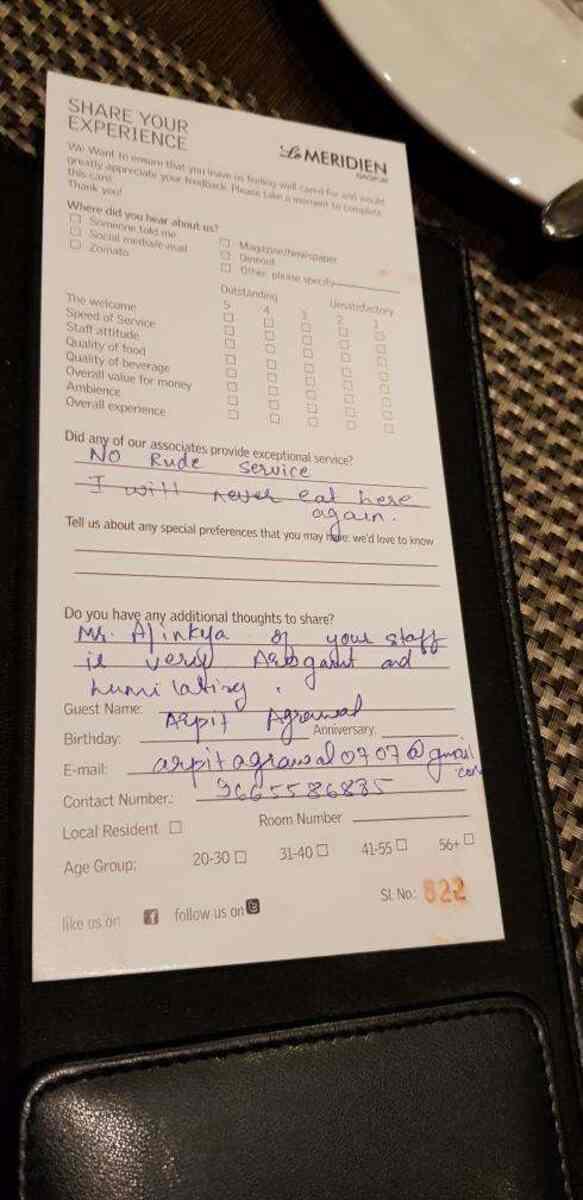 SHARE YOUR
EXPERIENCE
Le MERIDIEN
NAGPUR
We Want to ensure that you leave us feeling well cared for and would
greatly appreciate your feedback. Please take a moment to complete
this card.
Thank you!
Where did you hear about us?
Someone told me
Social media/e-mail
Zomato
Magazine/Newspaper
Dineout
Other, please specify
Outstanding
Unsatisfactory
5 4 3 2 1
The welcome
Speed of Service
Staff attitude
Quality of food
Quality of beverage
Overall value for money
Ambience
Overall experience
Did any of our associates provide exceptional service?
NO Rude service
I will never eat here
again.
Tell us about any special preferences that you may have: we'd love to know
Do you have any additional thoughts to share?
Mr. Ajinkya of your staff
is very Arrogant and
humilating.
Guest Name: Arpit Agrawal
Birthday:
Anniversary:
E-mail: arpitagrawal0707@gmail.
com
Contact Number.: 9665586885
Local Resident
Room Number
Age Group:
20-30
31-40
41-55
56+
like us on
follow us on
Sl. No.: 822